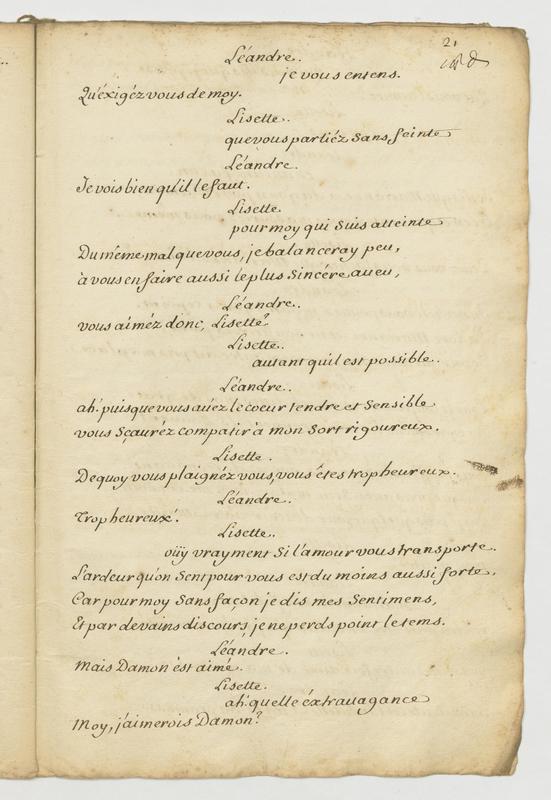 21
Léandre.
je vous entens.
Qu'éxigéz vous de moy.
Lisette.
que vous partiéz sans feinte
Léandre.
Je vois bien qu'il le faut.
Lisette.
pour moy qui suis atteinte
Du même mal que vous, je balanceray peu,
à vous en faire aussi le plus sincére aueu,
Léandre.
vous aiméz donc, Lisette?
Lisette.
autant quil est possible.
Léandre.
ah! puisque vous auéz le coeur tendre et sensible
vous sçauréz compatir à mon sort rigoureux.
Lisette.
De quoy vous plaignéz vous, vous êtes trop heureux.
Léandre.
Trop heureux!
Lisette.
oüÿ vrayment si l'amour vous transporte.
L'ardeur qu'on sent pour vous est du moins aussi forte,
Car pour moy sans façon je dis mes sentimens,
Et par de vains discours, je ne perds point le tems.
Léandre.
Mais Damon èst aimé.
Lisette.
ah! quelle éxtrauagance
Moy, j'aimerois Damon?